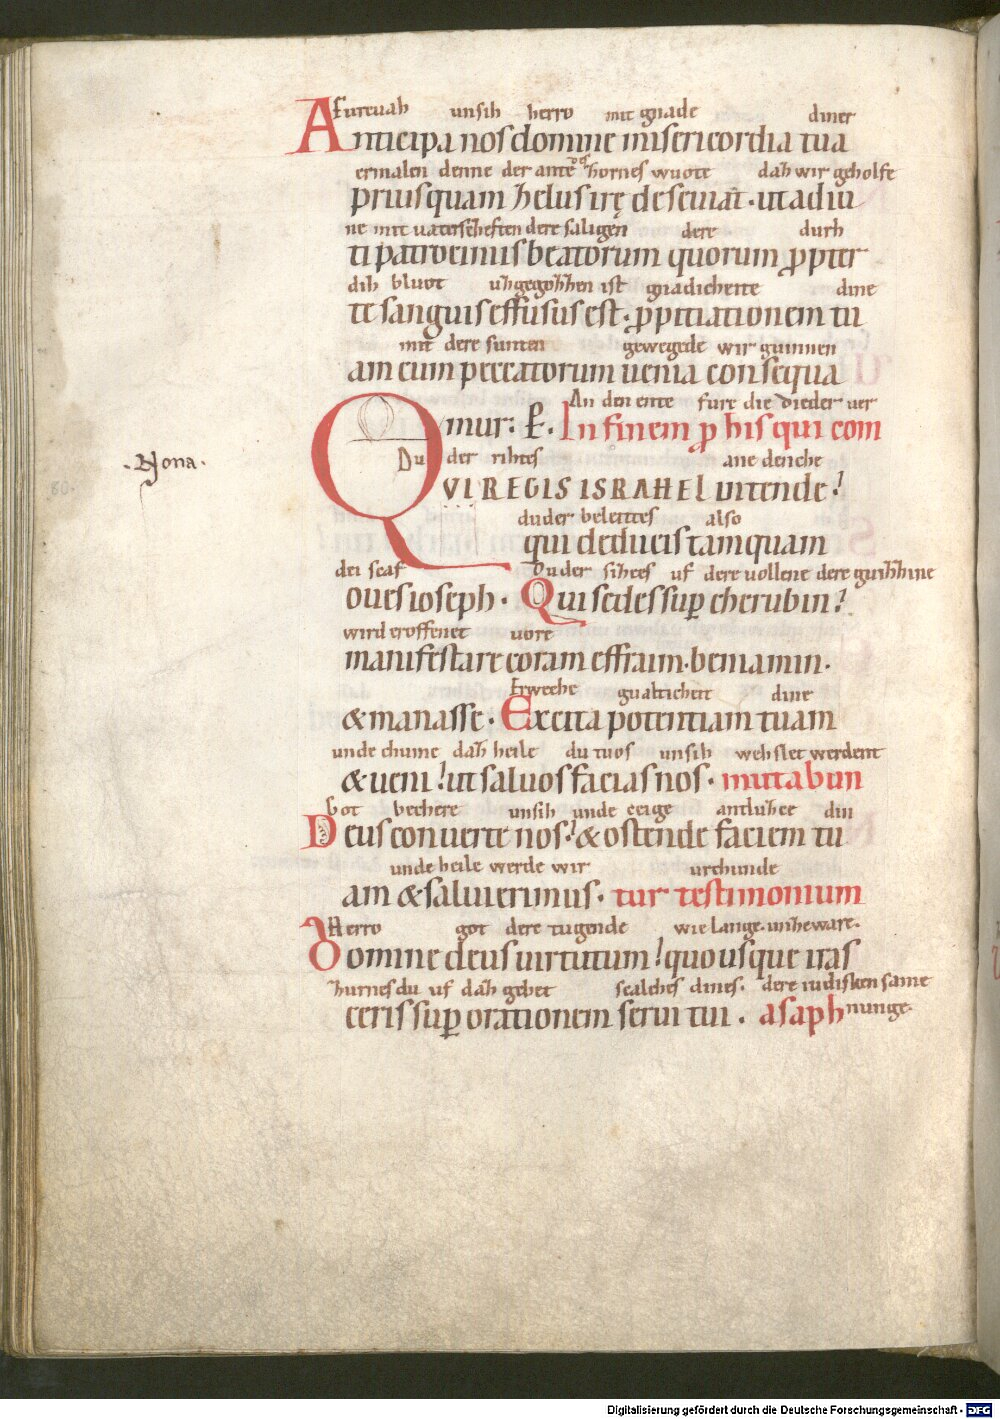 Fureuah unsih herro mit gnade diner
Anticipa nos domine misericordia tua
ermalen denne der ante hornes wuote dah wir geholfe
priusquam helus irę deseuiat · ut adiu
ne mit uaterscheften dere saligen dere durh
ti patrociniis beatorum quorum ꝓpter
dih bluot uhgegohhen ist gnadicheite dine
te sanguis effusus est · ꝓpitiationem tu
mit dere sunten gewegede wir guinnen
am cum peccatorum uenia consequa
An den ente fure die die der uer
mur · In finem ꝓ his qui com
· Nona ·
Du der rihtes ane denche
QVI REGIS ISRAHEL intende ?
du der beleites also
qui deducis tamquam
dei scaf Du der sihces uf dere uollene dere guihhine
oues ioseph · Qui sedes suꝑ cherubin ?
wird eroffenet uore
manifestare coram effraim · beniamin ·
Erweche gualticheit dine
& manasse · Excita potentiam tuam
unde chume dah heile du tuos unsih wehslet werdent
& ueni ? ut saluos facias nos · mutabun
bot bechere unsih unde ceige antluhce din
Deus conuerte nos ? & ostende faciem tu
unde heile werde wir urchunde
am & salui erimus · tur testimonium
Herro got dere tugende wie lange · unheware ·
Domine deus uirtutum ? quousque iras
hurnes du uf dah gebet scalches dines · dere iudisken same
ceris suꝑ orationem serui tui · asaph nunge ·
Digitalisierung gefördert durch die Deutsche Forschungsgemeinschaft - DFG